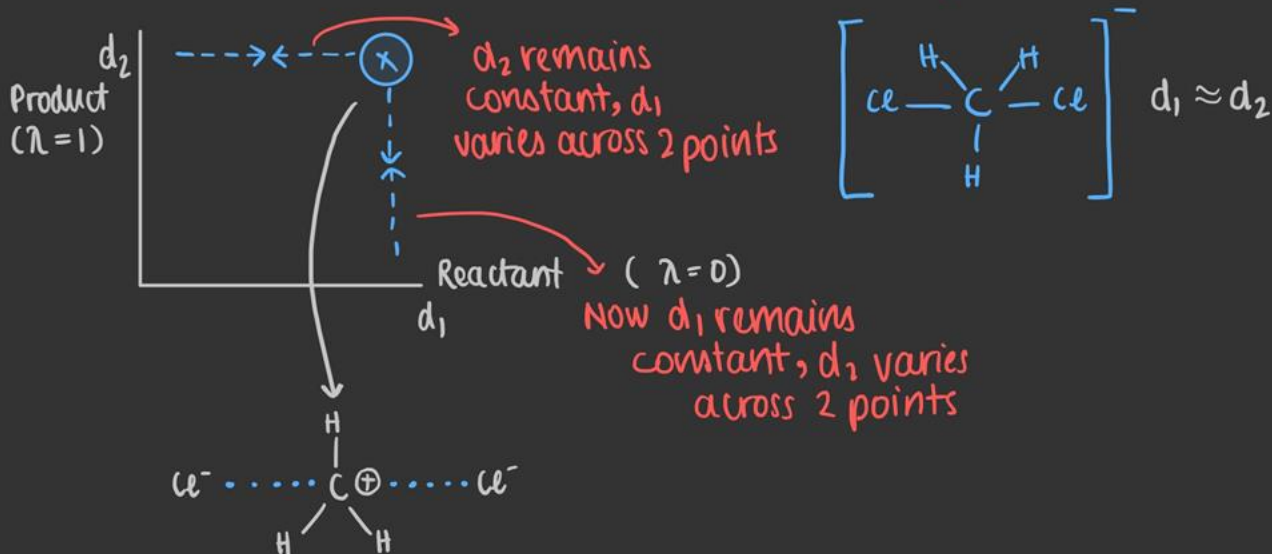 d₂
Product
(λ=1)
x
d₂ remains
constant, d₁
varies across 2 points
H H
Cl C Cl
H
−
d₁ ≈ d₂
Reactant (λ=0)
d₁
Now d₁ remains
constant, d₂ varies
across 2 points
H
Cl⁻ C ⊕ Cl⁻
H H